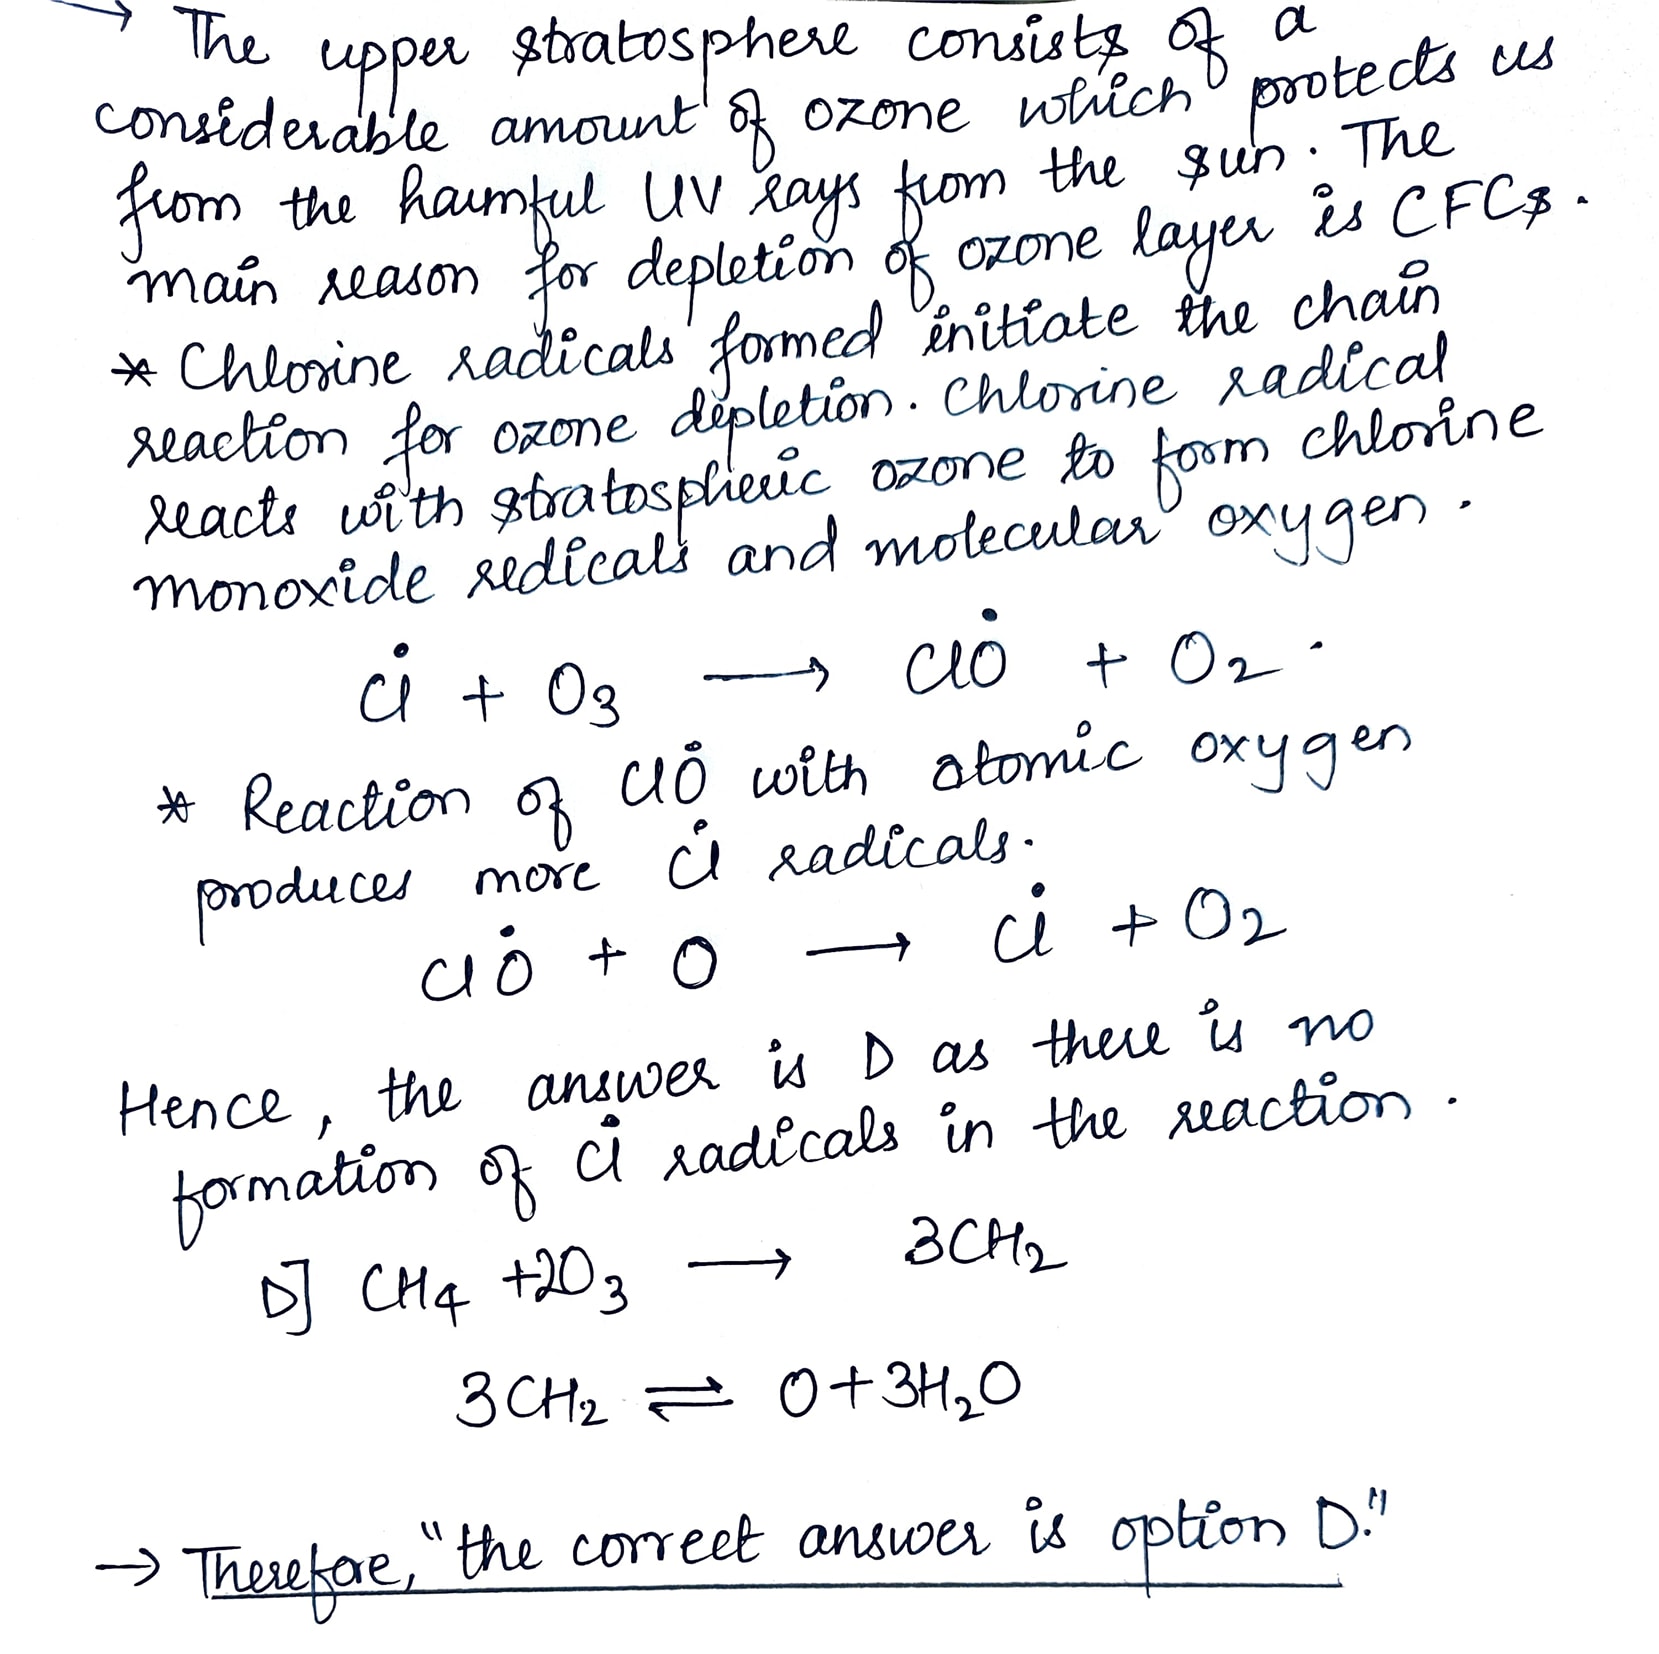 → The upper stratosphere consists of a
considerable amount of ozone which protects us
from the harmful UV rays from the sun. The
main reason for depletion of ozone layer is CFCs.
* Chlorine radicals formed initiate the chain
reaction for ozone depletion. Chlorine radical
reacts with stratospheric ozone to form chlorine
monoxide redicals and molecular oxygen.
Cl̇ + O3 → ClȮ + O2.
* Reaction of ClȮ with atomic oxygen
produces more Cl̇ radicals.
ClȮ + O → Cl̇ + O2
Hence, the answer is D as there is no
formation of Cl̇ radicals in the reaction.
D] CH4 +2O3 → 3CH2
3CH2 ⇌ O+3H2O
→ Therefore, "the correct answer is option D."